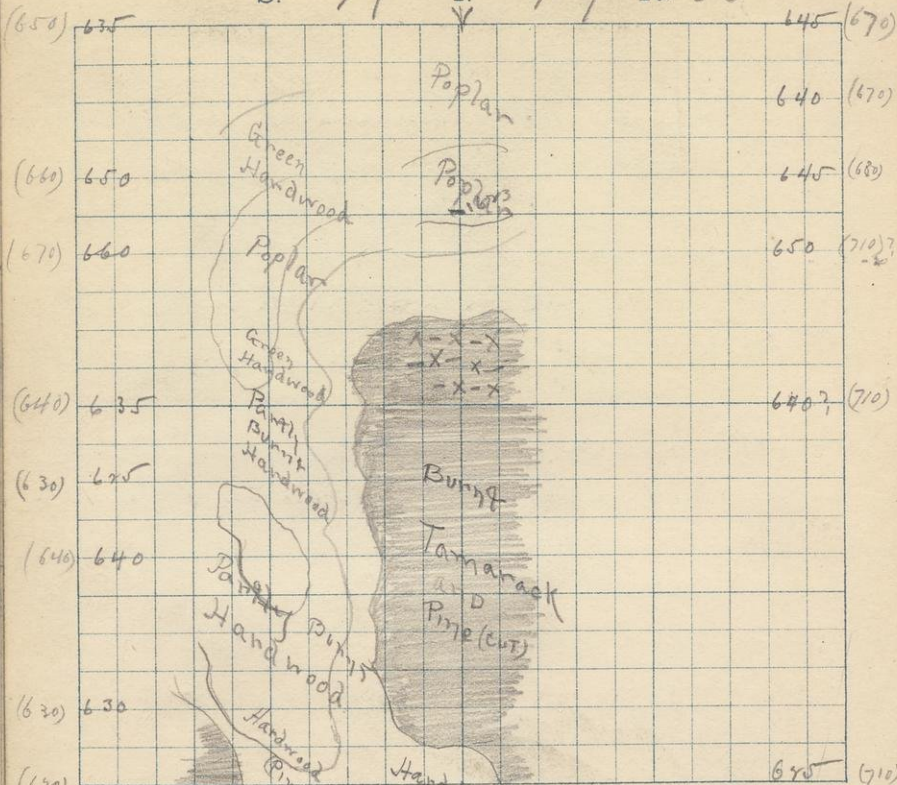 (650) 635
645 (670)
Poplar
640 (670)
Green
Hardwood
(660) 650
Poplar
645 (680)
(670) 660
Poplar
650 (710)?
Green
Hardwood
X-X-X
-X- X-
-X-X
(640) 635
640? (710)
Partly
Burnt
Hardwood
(630) 625
Burnt
Tamarack
and
Pine (CUT)
(640) 640
Partly Burnt
Hardwood
(630) 630
Hardwood
625 (710)